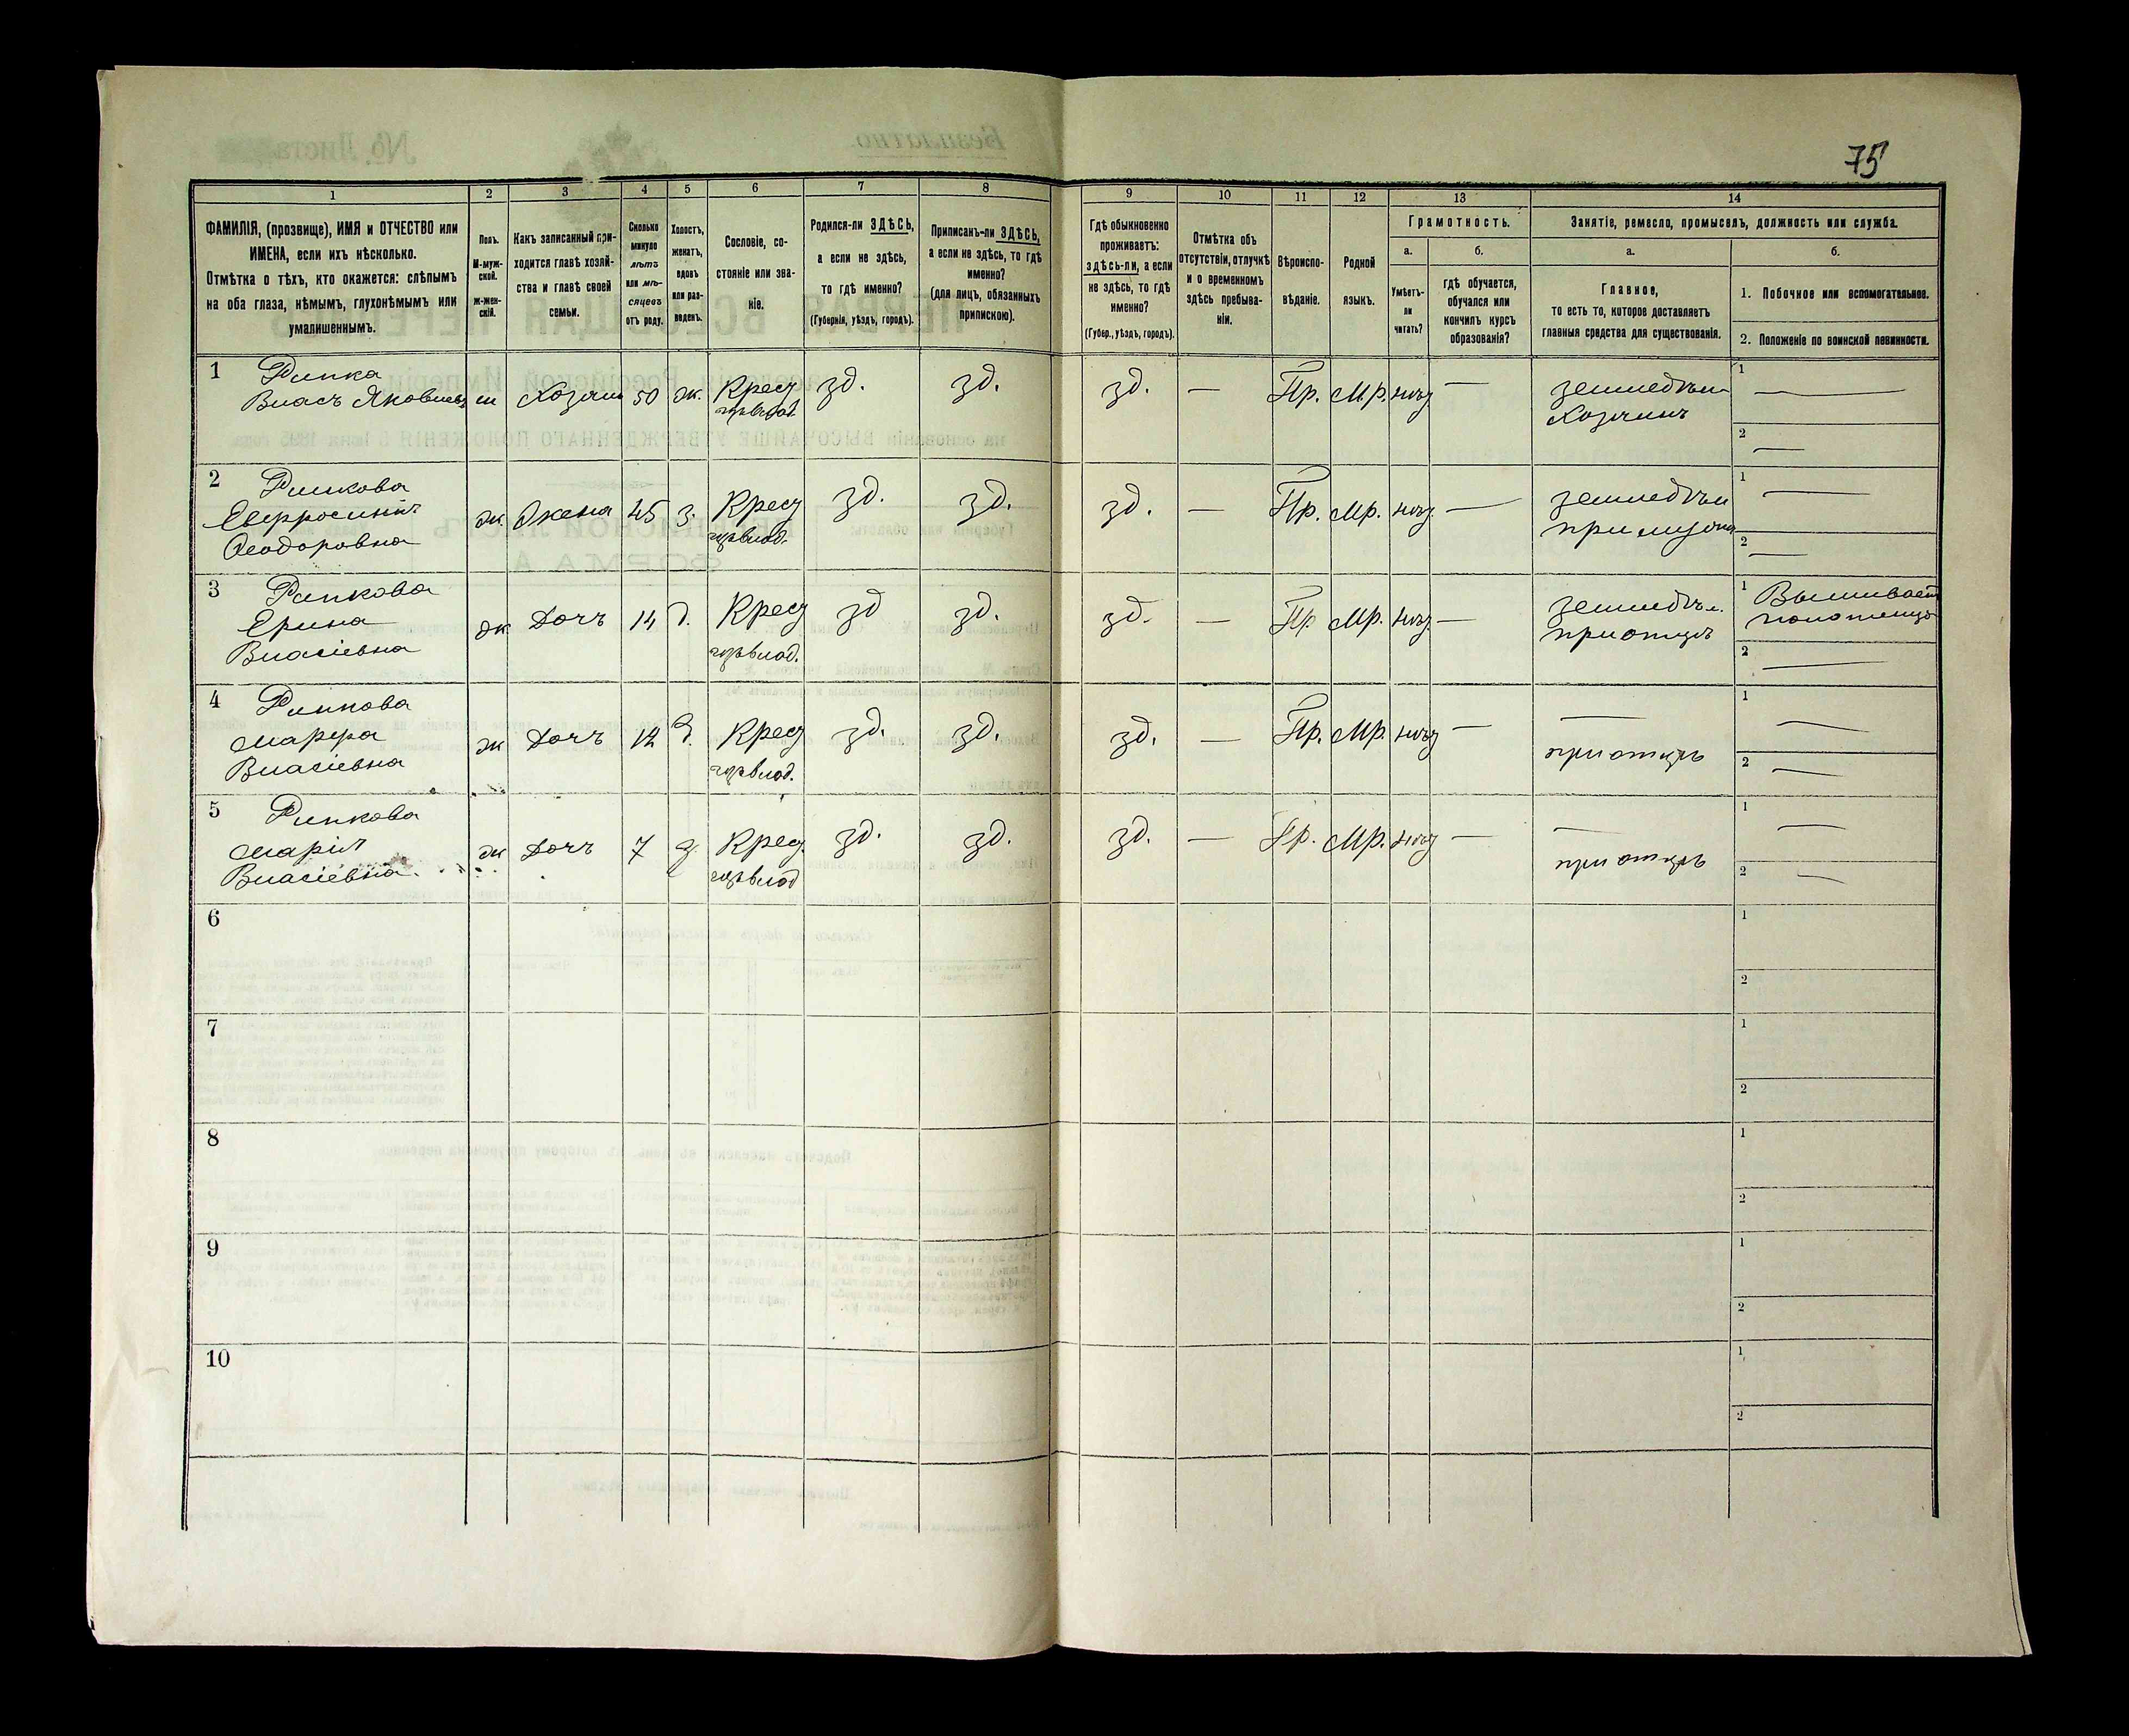 75
1 2 3 4 5 6 7 8 9 10 11 12 13 14
ФАМИЛІЯ, (прозвище), ИМЯ и ОТЧЕСТВО или
ИМЕНА, если ихъ нѣсколько.
Отмѣтка о тѣхъ, кто окажется: слѣпымъ
на оба глаза, нѣмымъ, глухонѣмымъ или
умалишеннымъ.
Полъ.
М-муж-
ской.
ж-жен-
скій.
Какъ записанный при-
ходится главѣ хозяй-
ства и главѣ своей
семьи.
Сколько
минуло
лѣтъ
или мѣ-
сяцевъ
отъ роду.
Холостъ,
женатъ,
вдовъ
или раз-
веденъ.
Сословіе, со-
стояніе или зва-
ніе.
Родился-ли ЗДѢСЬ,
а если не здѣсь,
то гдѣ именно?
(Губернія, уѣздъ, городъ).
Приписанъ-ли ЗДѢСЬ,
а если не здѣсь, то гдѣ
именно?
(для лицъ, обязанныхъ
припискою).
Гдѣ обыкновенно
проживаетъ:
здѣсь-ли, а если
не здѣсь, то гдѣ
именно?
(Губер., уѣздъ, городъ).
Отмѣтка объ
отсутствіи, отлучкѣ
и о временномъ
здѣсь пребыва-
ніи.
Вѣроиспо-
вѣданіе.
Родной
языкъ.
Грамотность.
а. б.
Умѣетъ-
ли
читать?
гдѣ обучается,
обучался или
кончилъ курсъ
образованія?
Занятіе, ремесло, промыселъ, должность или служба.
а. б.
Главное,
то есть то, которое доставляетъ
главныя средства для существованія.
1. Побочное или вспомогательное.
2. Положеніе по воинской повинности.
1 Рипка
Власъ Яковлевъ м Хозяинъ 50 ж. Крест зд. зд. зд. — Пр. М.р. нѣт — земледѣл 1 —
Хозяинъ
2 —
2 Рипкова
Евфросинія
Ѳеодоровна
ж Жена 45 з. Крест зд. зд. зд. — Пр. Мр. нѣт — земледѣл 1 —
при мужѣ
2 —
3 Рипкова
Ерина
Власіевна
ж Дочь 14 д. Крест зд зд. зд. — Пр Мр. нѣт — земледѣл. 1 Вышивает
при отцѣ полотенца
2 —
4 Рипкова
Марфа
Власіевна
ж Дочь 12 д. Крест зд. зд. зд. — Пр. Мр. нѣт — — 1 —
при отцѣ
2 —
5 Рипкова
Марія
Власіевна
ж Дочь 7 д. Крест зд. зд. зд. — Пр. Мр. нѣт — — 1 —
при отцѣ
2 —
6 1
2
7 1
2
8 1
2
9 1
2
10 1
2